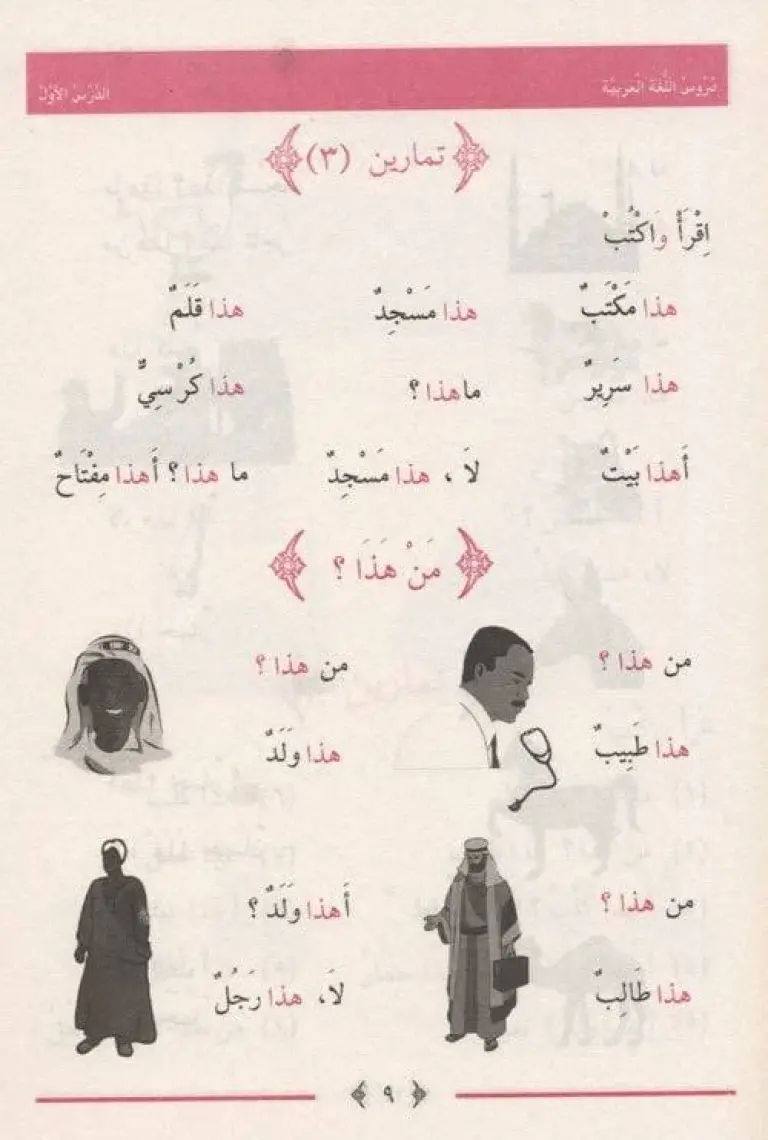 دروس اللغة العربية الدرس الأول
تمارين (٣)
اِقْرَأْ وَاكْتُبْ
هذا مَكْتَبٌ هذا مَسْجِدٌ هذا قَلَمٌ
هذا سَرِيرٌ ماهذا ؟ هذا كُرْسِيٌّ
أَهذا بَيْتٌ لَا ، هذا مَسْجِدٌ ما هذا ؟ أَهذا مِفْتَاحٌ
مَنْ هَذَا ؟
من هذا ؟ من هذا ؟
هذا طَبِيبٌ هذا وَلَدٌ
من هذا ؟ أَهذا وَلَدٌ ؟
هذا طَالِبٌ لَا، هذا رَجُلٌ
٩